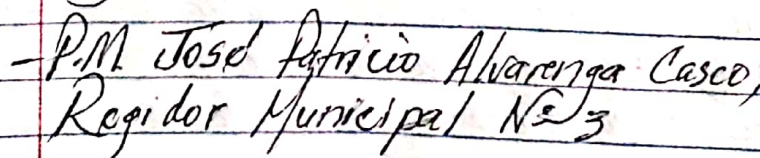 -P.M. José Patricio Alvarenga Casco,
Regidor Municipal Nº 3